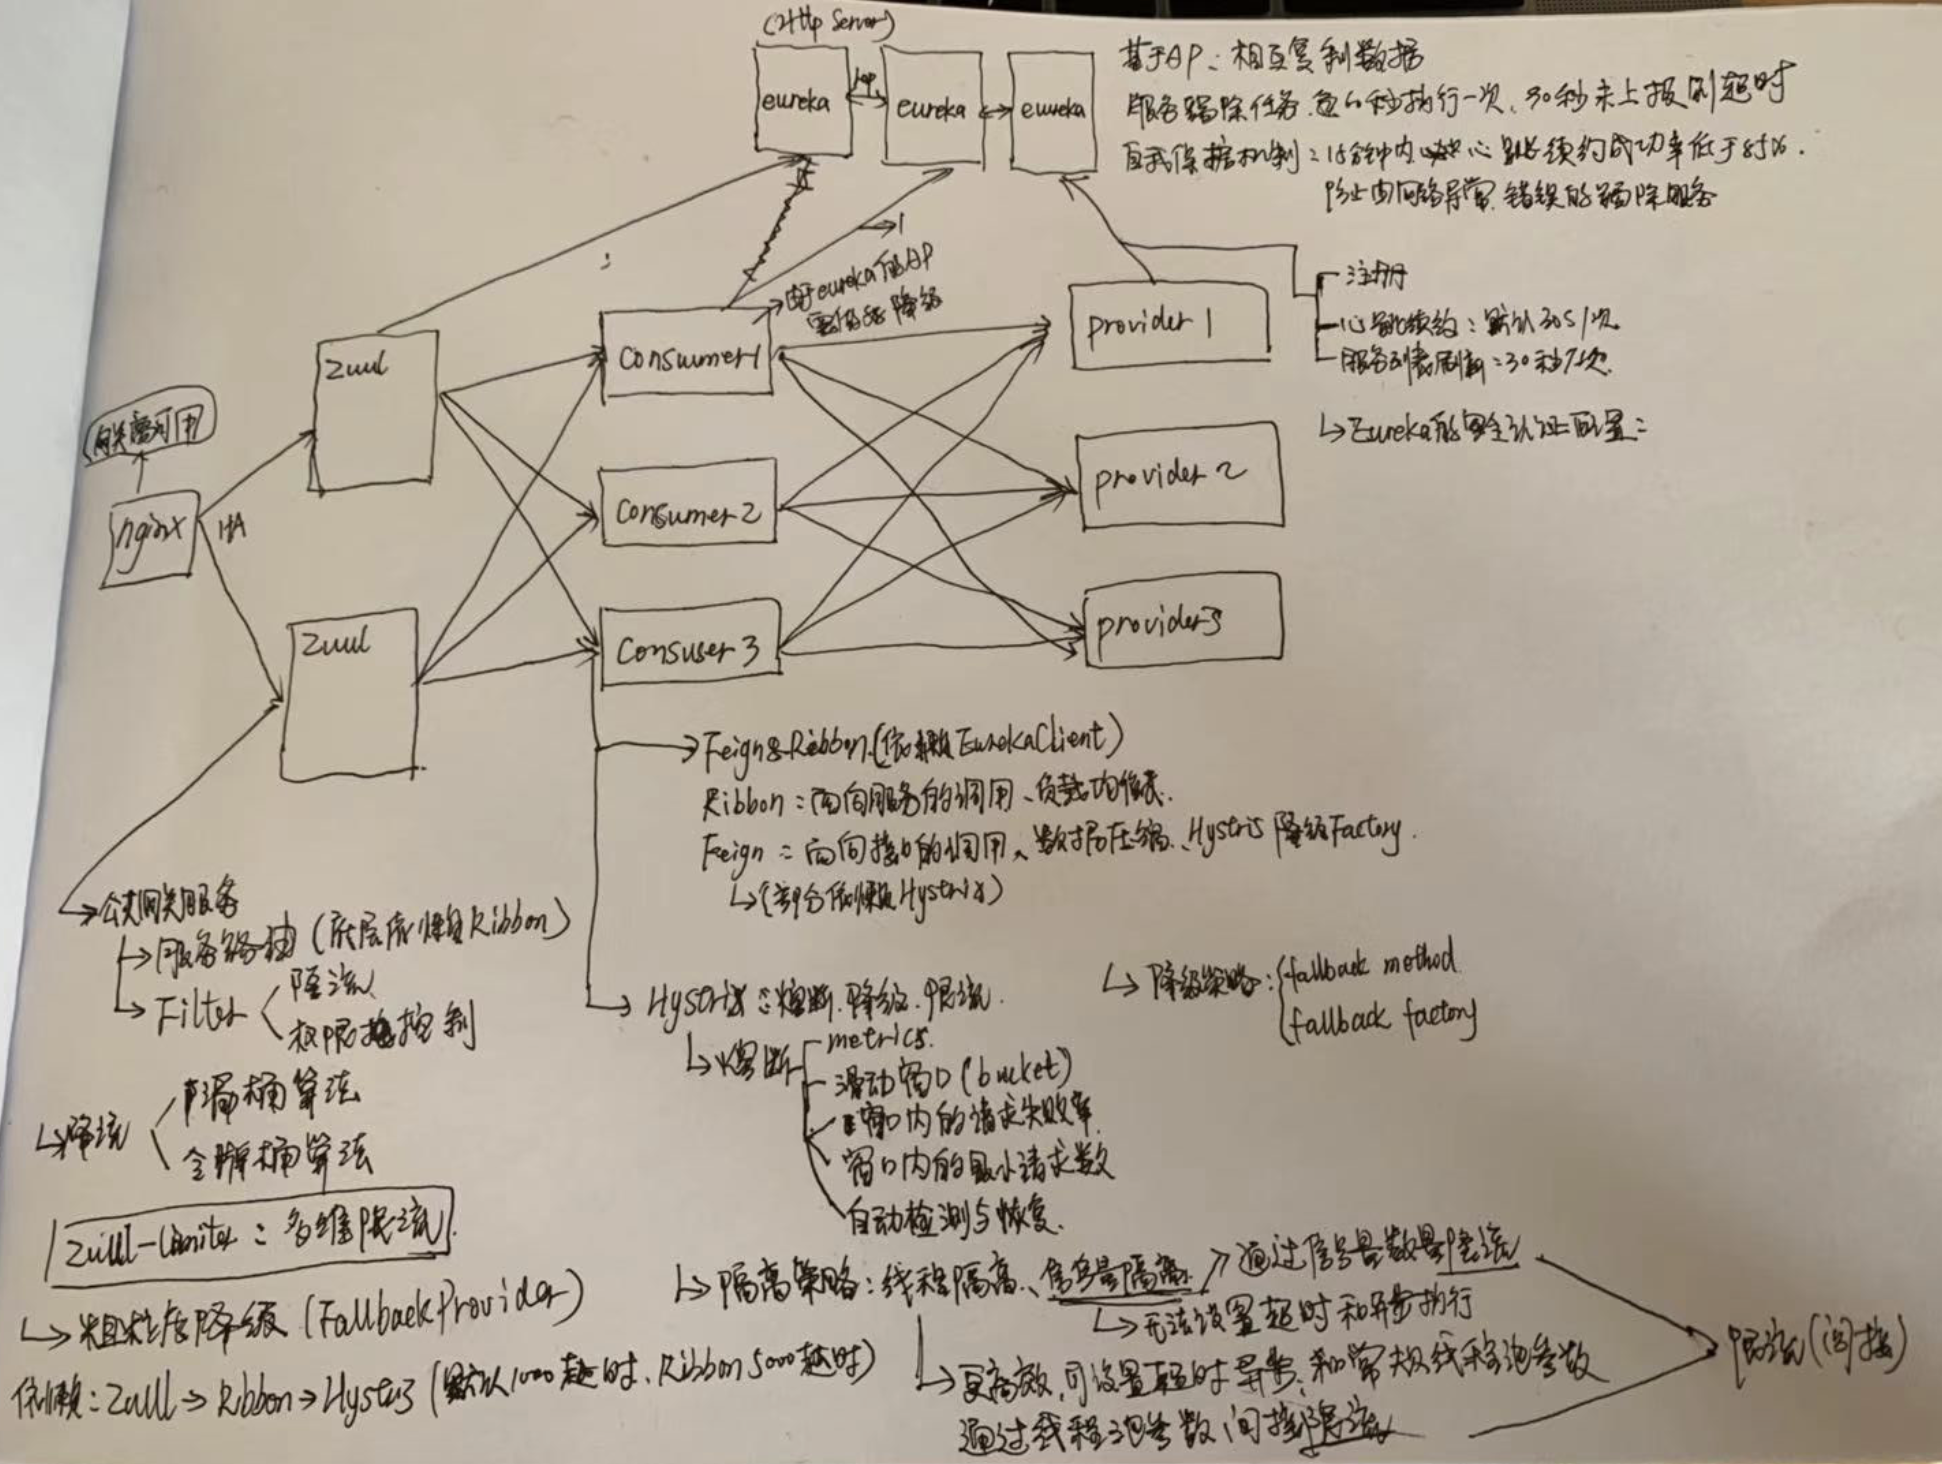 (Http Server)
eureka
eureka
eureka
基于AP：相互复制数据
服务剔除任务.每60秒执行一次，90秒未上报则超时
自我保护机制：15分钟内心跳续约成功率低于85%.
防止由网络异常.错误的剔除服务
由于eureka的AP
降级
注册
心跳续约：默认30s/次
服务列表刷新：30秒/次
Eureka的安全认证配置：
zuul
consumer1
provider 1
网关高可用
nginx
HA
consumer2
provider 2
zuul
Consuser 3
provider3
Feign&Ribbon.(依赖EurekaClient)
Ribbon：面向服务的调用、负载均衡
Feign：面向接口的调用、数据压缩、Hystris 降级Factory.
(部分依赖Hystrix)
公共网关服务
服务路由 (底层依赖Ribbon)
Filter
限流
权限控制
Hystrix：熔断.降级.限流.
降级策略：
fallback method
fallback factory
熔断
metrics.
滑动窗口(bucket)
窗口内的请求失败率
窗口内的最小请求数
自动检测与恢复.
限流
漏桶算法
令牌桶算法
zuul-limiter：多维限流
粗粒度降级 (FallbackProvider)
依赖：Zuul→Ribbon→Hystrix (默认1000超时、Ribbon 5000超时)
隔离策略：线程隔离、信号量隔离
通过信号量数量限流
无法设置超时和异步执行
更高效,可设置超时异步,和常规线程池参数
通过线程池参数间接限流
限流(间接)